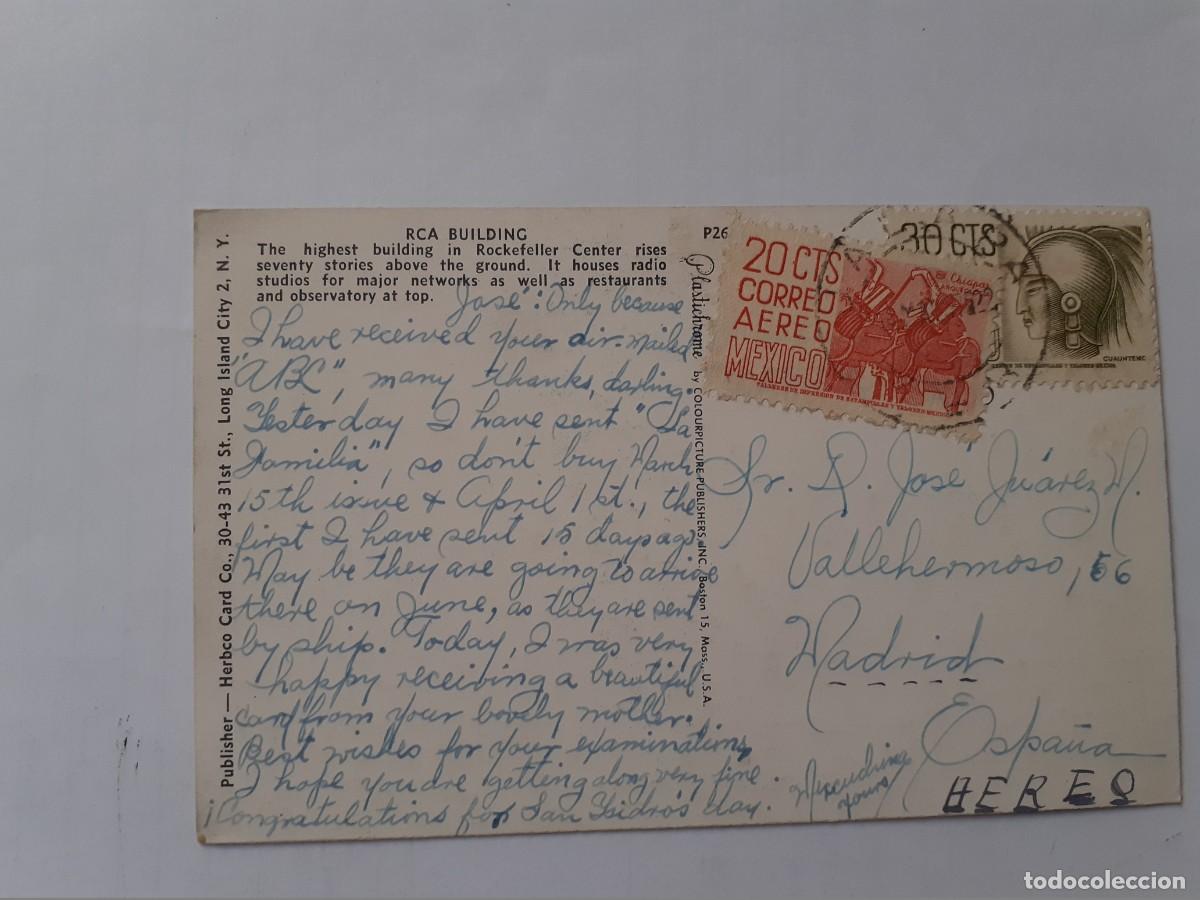 RCA BUILDING
The highest building in Rockefeller Center rises
seventy stories above the ground. It houses radio
studios for major networks as well as restaurants
and observatory at top.
José: Only because
I have received your air-mailed
"ABC", many thanks, darling.
Yesterday I have sent "La
Familia", so don't buy March
15th issue & April 1st., the
first I have sent 15 days ago.
May be they are going to arrive
there on June, as they are sent
by ship. Today, I was very
happy receiving a beautiful
card from your lovely mother.
Best wishes for your examinations,
I hope you are getting along very fine.
¡Congratulations for San Isidro's day.
yours
Publisher — Herbco Card Co., 30-43 31st St., Long Island City 2, N. Y.
P26
Plastichrome by COLOURPICTURE PUBLISHERS, INC., Boston 15, Mass., U.S.A.
20 CTS
CORREO
AEREO
MEXICO
TALLERES DE IMPRESION DE ESTAMPILLAS Y VALORES MEXICO
Chiapas
30 CTS
CUAUHTEMOC
Sr. D. José Juárez M.
Vallehermoso, 66
Madrid
España
AEREO
todocoleccion